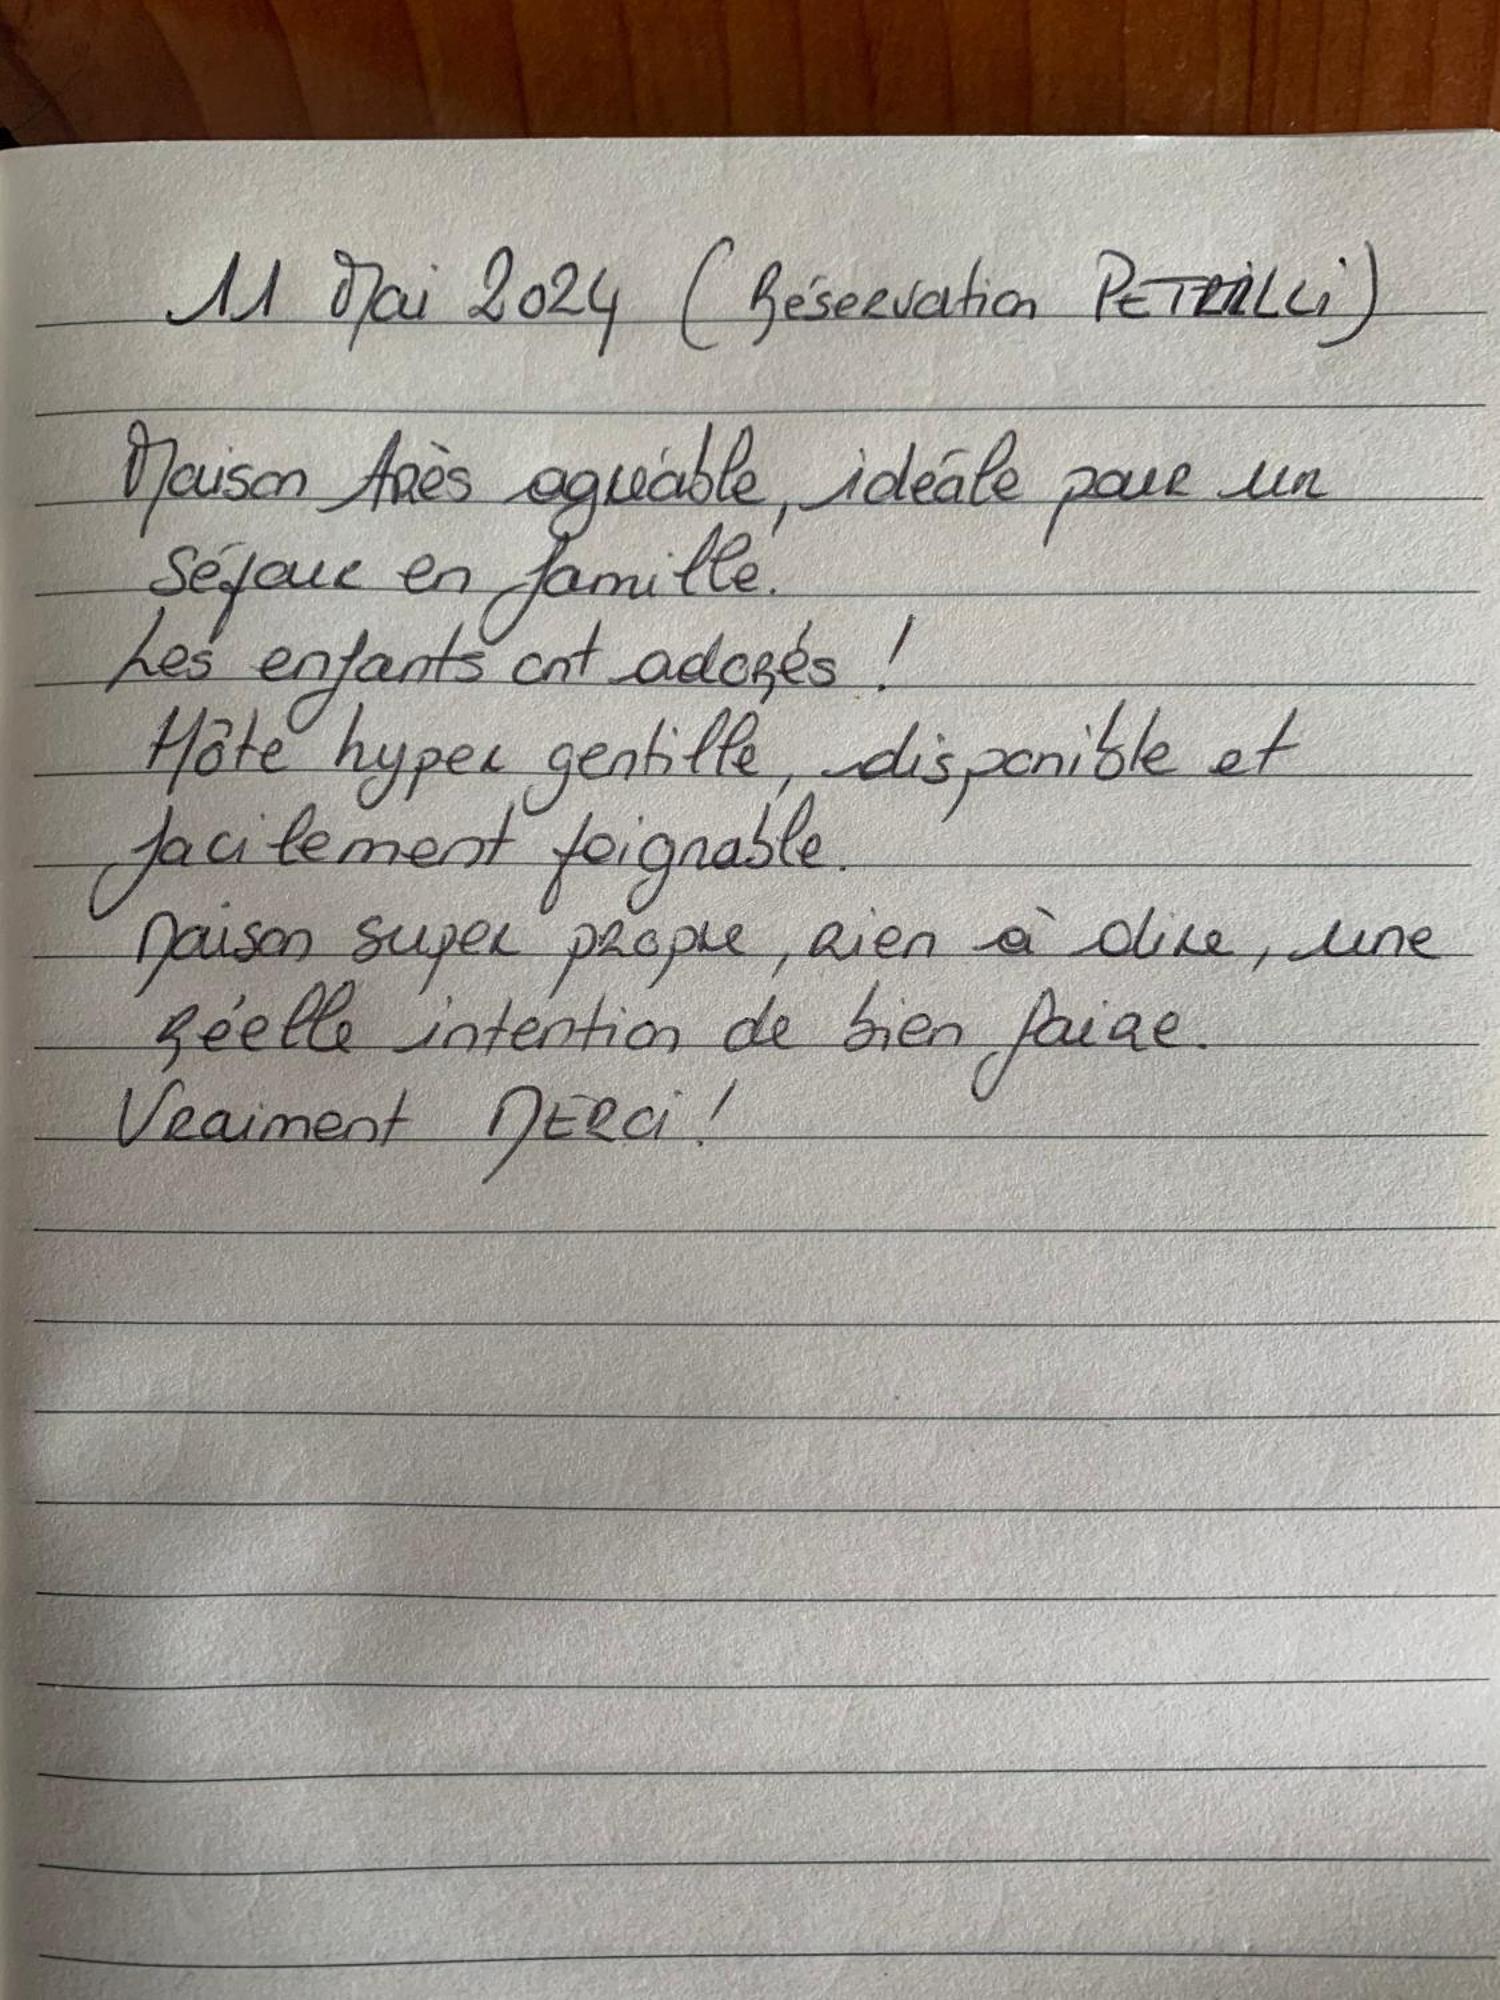 11 Mai 2024 (Réservation PETRILLi)
Maison très agréable, idéale pour un
séjour en famille.
Les enfants ont adorés !
Hôte hyper gentille, disponible et
facilement joignable.
Maison super propre, rien à dire, une
réelle intention de bien faire.
Vraiment MERCi !